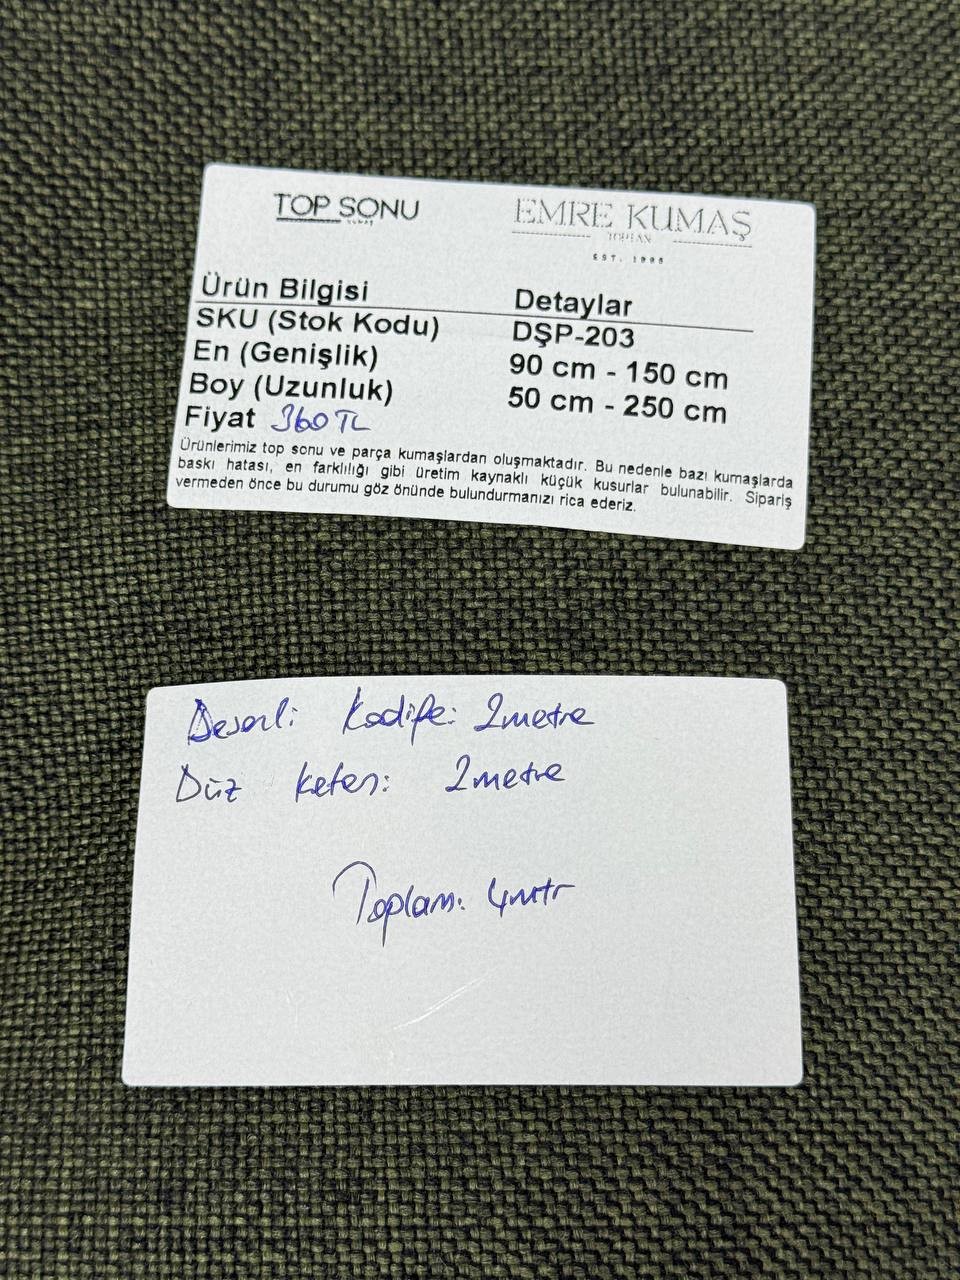 TOP SONU
EMRE KUMAŞ
TOPTAN
EST. 1996
Ürün Bilgisi Detaylar
SKU (Stok Kodu) DŞP-203
En (Genişlik) 90 cm - 150 cm
Boy (Uzunluk) 50 cm - 250 cm
Fiyat 360 TL
Ürünlerimiz top sonu ve parça kumaşlardan oluşmaktadır. Bu nedenle bazı kumaşlarda
baskı hatası, en farklılığı gibi üretim kaynaklı küçük kusurlar bulunabilir. Sipariş
vermeden önce bu durumu göz önünde bulundurmanızı rica ederiz.
Desenli Kadife: 2metre
Düz keten: 2metre
Toplam: 4mtr